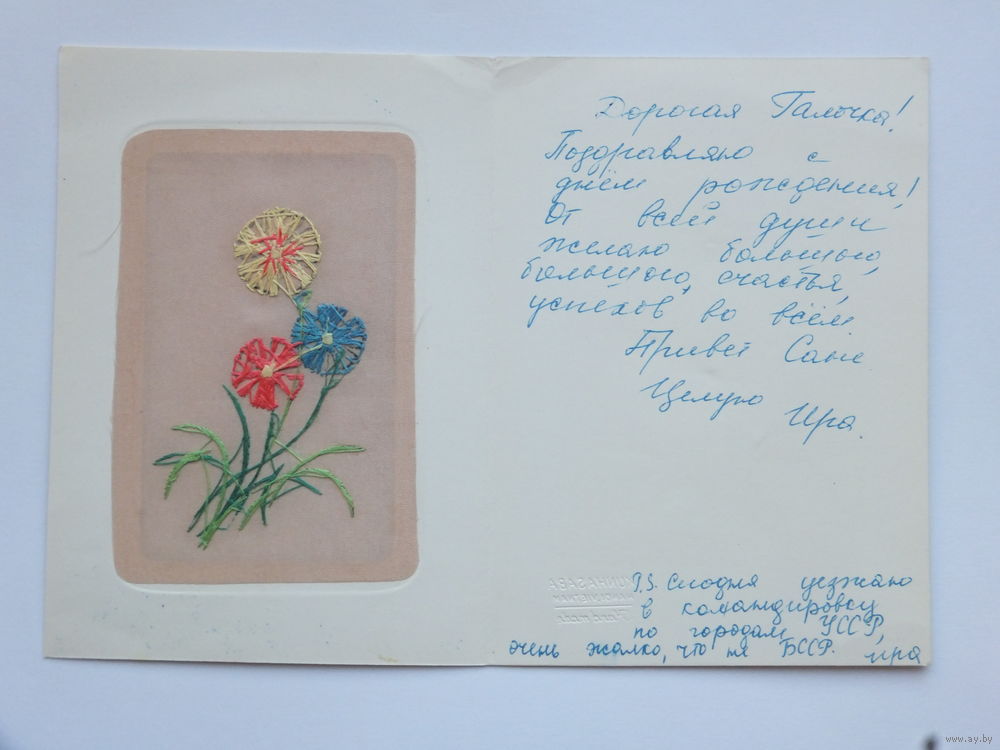 Дорогая Галочка!
Поздравляю с
днём рождения!
От всей души
желаю большого,
большого, счастья,
успехов во всём.
Привет Сане
Целую
Ира.
P.S. Сегодня уезжаю
в командировку
по городам УССР,
очень жалко, что не БССР. Ира
HANOI VIETNAM
Hand made
www.ay.by